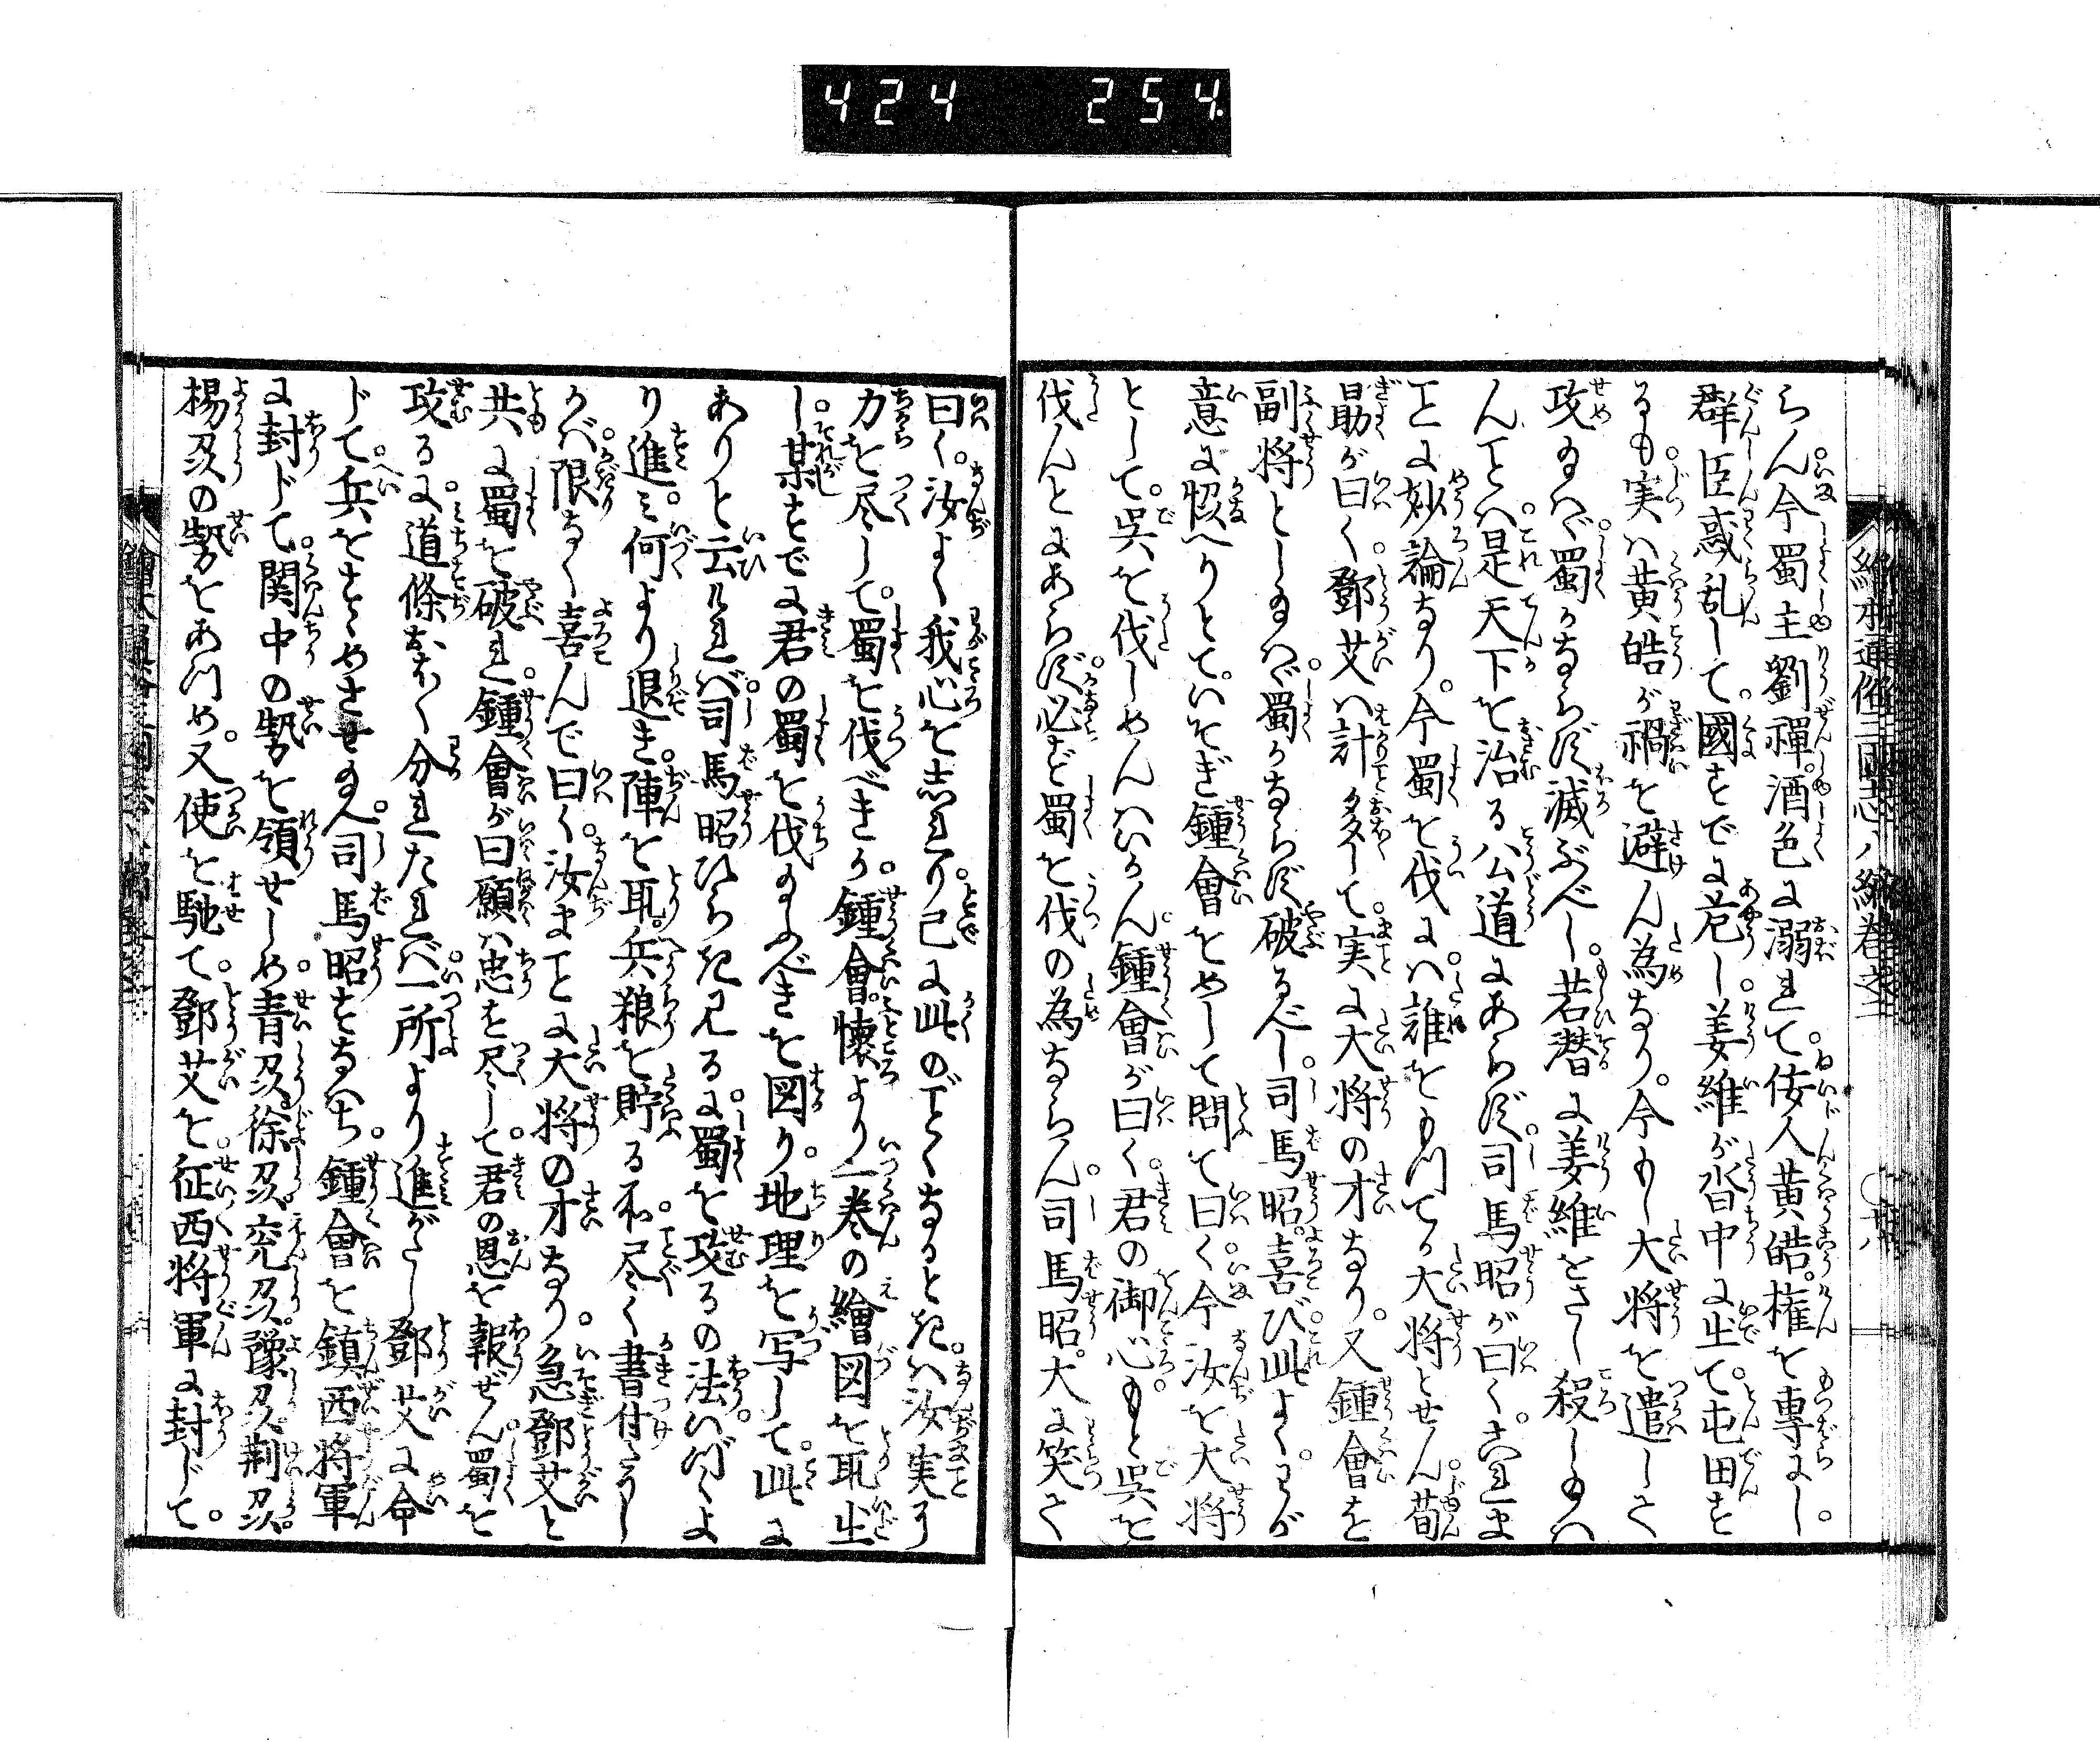 424 254
繪本通俗三國志八編巻之二
らん。今蜀主劉禪。酒色に溺れて。佞人黄皓。権を専にし。
群臣惑乱して。國すでに危し。姜維が沓中に出て。屯田を
るも。実は黄皓が禍を避ん為なり。今もし大将を遣しさく
攻給へば。蜀かならず滅ぶべし。若潜に姜維をさし殺し給は
んことは。是天下を治る公道にあらず。司馬昭が曰く。これま
ことに妙論なり。今蜀を伐に。は誰をもつてか大将とせん。荀
勗が曰く。鄧艾は計多して。実に大将の才なり。又鍾會を
副将とし給はゞ。蜀かならず破るべし。司馬昭。喜び此よく。わが
意に恊へりとて。いそぎ鍾會をめして問て曰く。今汝を大将
として。呉を伐しめんはいかん。鍾會が曰く。君の御心。もと呉を
伐んとにあらず。必ず蜀を伐の為ならん。司馬昭。大に笑て
曰く。汝よく我心を志れり。己に此のごとくなるときは。汝実に
力を尽して。蜀を伐べきか。鍾會。懐より一巻の繪図を取出
し。某すでに君の蜀を伐給ふべきを図り。地理を写して。此に
ありと云ければ。司馬昭ひらき見るに。蜀を攻るの法。いづくよ
り進ミ。何より退き。陣を取。兵粮を貯る不尽く書付たりし
かば。限なく喜んで曰く。汝まことに大将の才なり。急鄧艾と
共に蜀を破れ。鍾會が曰願は忠を尽して。君の恩を報ぜん。蜀を
攻るに。道條おほく分れたれば。一所より進がたし鄧艾に命
じて。兵をすゝめさせ給へ。司馬昭すなはち。鍾會を鎮西将軍
に封じて。関中の勢を領せしめ。青州。徐州。兗州。豫州。荊州。
楊州の勢をあつめ。又使を馳て。鄧艾を征西将軍に封じて。